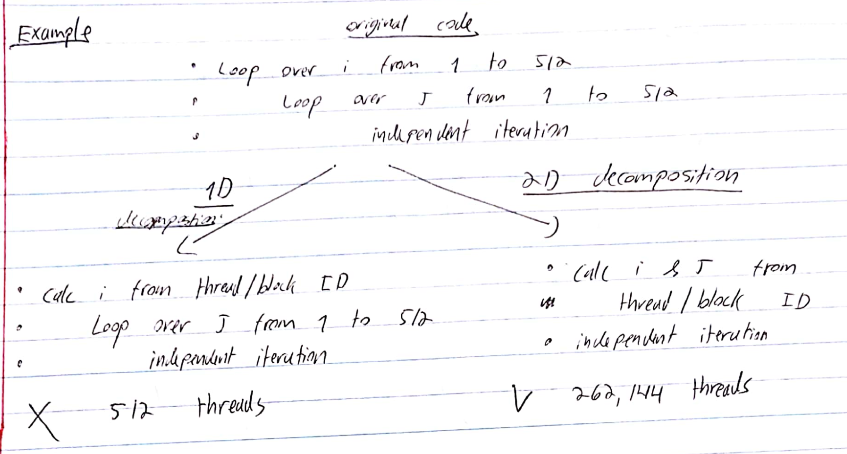 Example
original code
• Loop over i from 1 to 512
• Loop over J from 1 to 512
• independent iteration
1D
decomposition
2D decomposition
• calc i from thread/block ID
• Loop over J from 1 to 512
• independent iteration
X 512 threads
• calc i & J from
thread/block ID
• independent iteration
V 262,144 threads